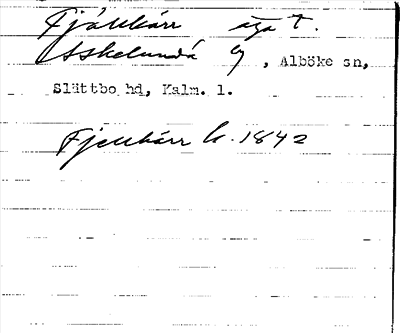 Fjällkärr äga t.
Askelunda , Alböke sn,
Slättbo hd, Kalm. l.
Fjellkärr k. 1842